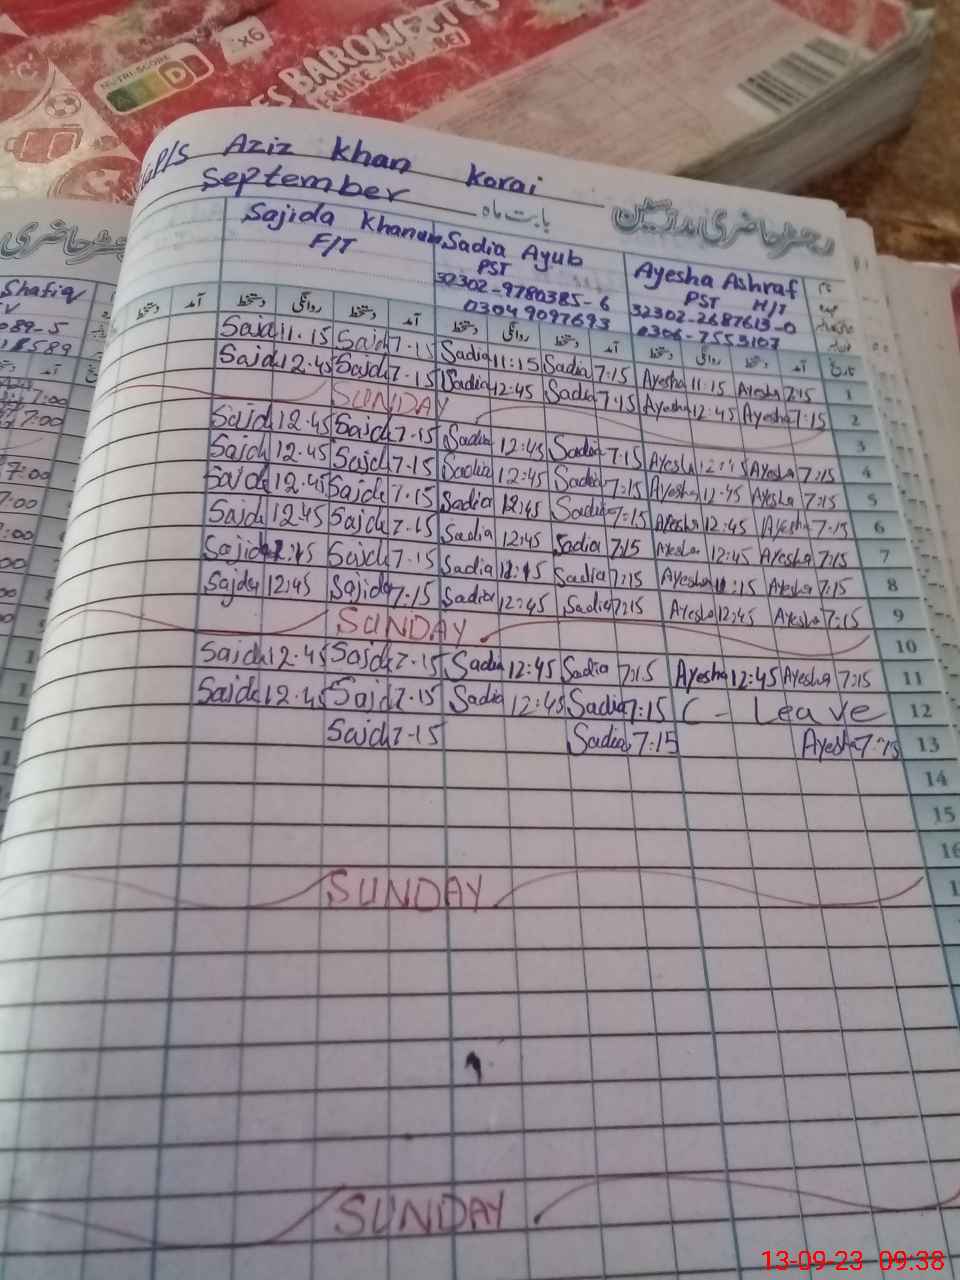 NUTRI-SCORE
D
x6
BARQUETTES
P/S Aziz Khan Korai
September بابت ماہ رجسٹر حاضری مدرسین
Sajida Khanum Sadia Ayub Ayesha Ashraf نام
F/T PST PST H/T عہدہ
32302-9780385-6 32302-2687613-0
03049097693 0306-7553107
دستخط آمد دستخط روانگی دستخط آمد دستخط روانگی دستخط آمد دستخط روانگی دستخط آمد تاریخ
Sajd 11.15 Sajd 7.15 Sadia 11:15 Sadia 7:15 Ayesha 11:15 Ayesha 7:15 1
Sajd 12.45 Sajd 7.15 Sadia 12:45 Sadia 7:15 Ayesha 12:45 Ayesha 7:15 2
SUNDAY 3
Sajd 12.45 Sajd 7.15 Sadia 12:45 Sadia 7:15 Ayesha Ayesha 7:15 4
Sajd 12.45 Sajd 7.15 Sadia 12:45 Sadia 7:15 Ayesha 12:45 Ayesha 7:15 5
Sajd 12.45 Sajd 7.15 Sadia 12:45 Sadia 7:15 Ayesha 12:45 Ayesha 7:15 6
Sajd 12.45 Sajd 7.15 Sadia 12:45 Sadia 7:15 Ayesha 12:45 Ayesha 7:15 7
Sajida Sajd 7.15 Sadia Sadia 7:15 Ayesha Ayesha 7:15 8
Sajda 12:45 Sajida 7:15 Sadia 12:45 Sadia 7:15 Ayesha 12:45 Ayesha 7:15 9
SUNDAY 10
Sajd 12.45 Sajd 7.15 Sadia 12:45 Sadia 7:15 Ayesha 12:45 Ayesha 7:15 11
Sajd 12.45 Sajd 7.15 Sadia 12:45 Sadia 7:15 C - Leave 12
Sajd 7.15 Sadia 7:15 Ayesha 7:15 13
14
15
16
SUNDAY
SUNDAY
Shafiq
089-5
8589
7:00
7:00
7:00
7:00
13-09-23 09:38